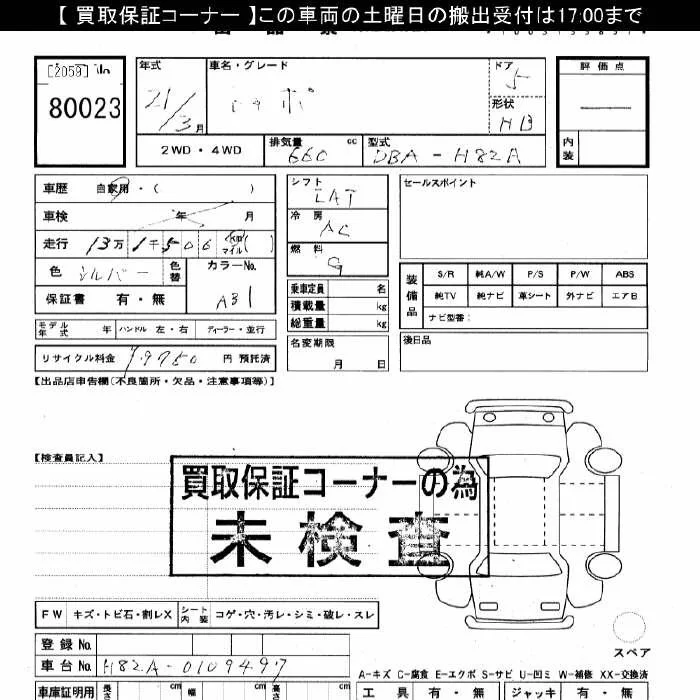 【 買取保証コーナー 】この車両の土曜日の搬出受付は17:00まで
[2059] No
80023
年式
21/3月
車名・グレード
トッポ
ドア
5
形状
HB
評価点
内装
2WD・4WD
排気量
660 cc
型式
DBA-H82A
車歴 自家用・( )
車検 年 月
走行 13万1千506 km マイル( )
色 シルバー 色替
カラーNo.
A31
保証書 有・無
モデル年式 年 ハンドル 左・右 ディーラー・並行
リサイクル料金 円 預託済
シフト
LAT
冷房
AC
燃料
G
乗車定員 名
積載量 kg
総重量 kg
名変期限
月 日
セールスポイント
装備品
S/R 純A/W P/S P/W ABS
純TV 純ナビ 革シート 外ナビ エアB
ナビ型番:
後日品
【出品店申告欄(不良箇所・欠品・注意事項等)】
【検査員記入】
買取保証コーナーの為
未検査
FW キズ・トビ石・割レX シート内装 コゲ・穴・汚レ・シミ・破レ・スレ
登録 No.
車台 No. H82A-0109497
スペア
A-キズ C-腐食 E-エクボ S-サビ U-凹ミ W-補修 XX-交換済
車庫証明用 長さ cm 幅 cm 高さ cm
工具 有・無 ジャッキ 有・無